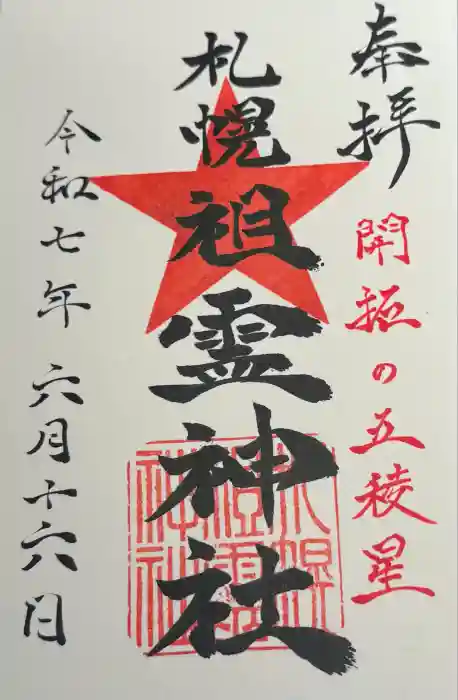 奉拝
開拓の五稜星
札幌祖霊神社
令和七年 六月十六日
札幌
祖霊
神社